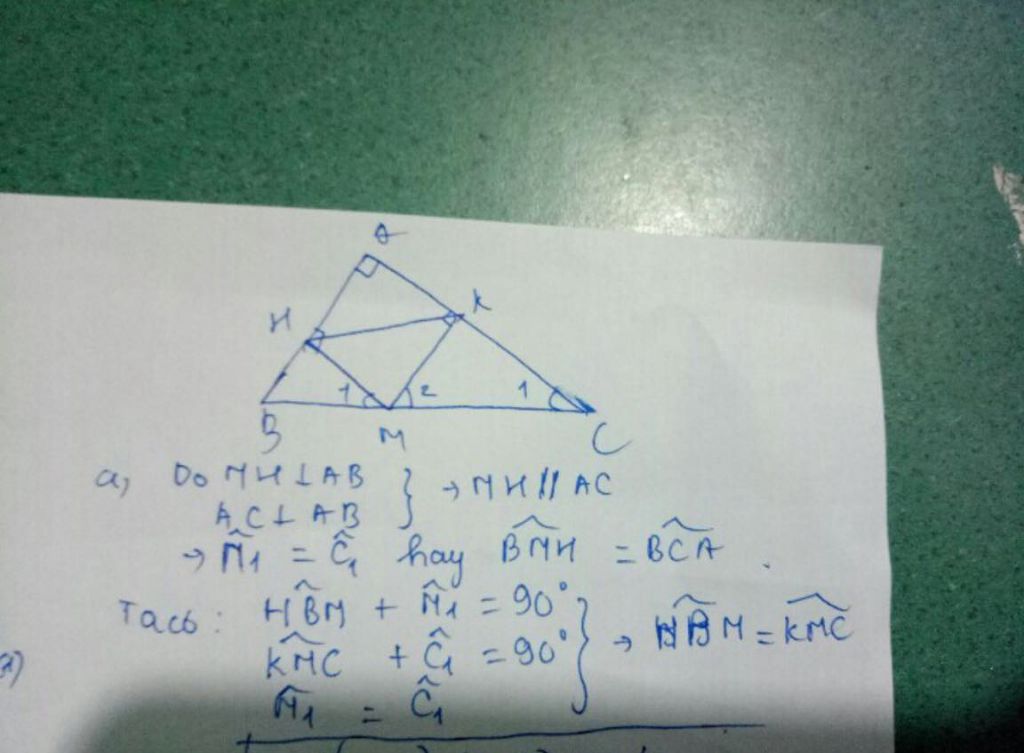 A
H K
1 2 1
B M C
a, Do MH ⊥ AB
AC ⊥ AB } → MH // AC
→ M̂1 = Ĉ1 hay B̂MH = B̂CA .
Ta có : ĤBM + M̂1 = 90°
K̂MC + Ĉ1 = 90° } → ĤBM = K̂MC
M̂1 = Ĉ1